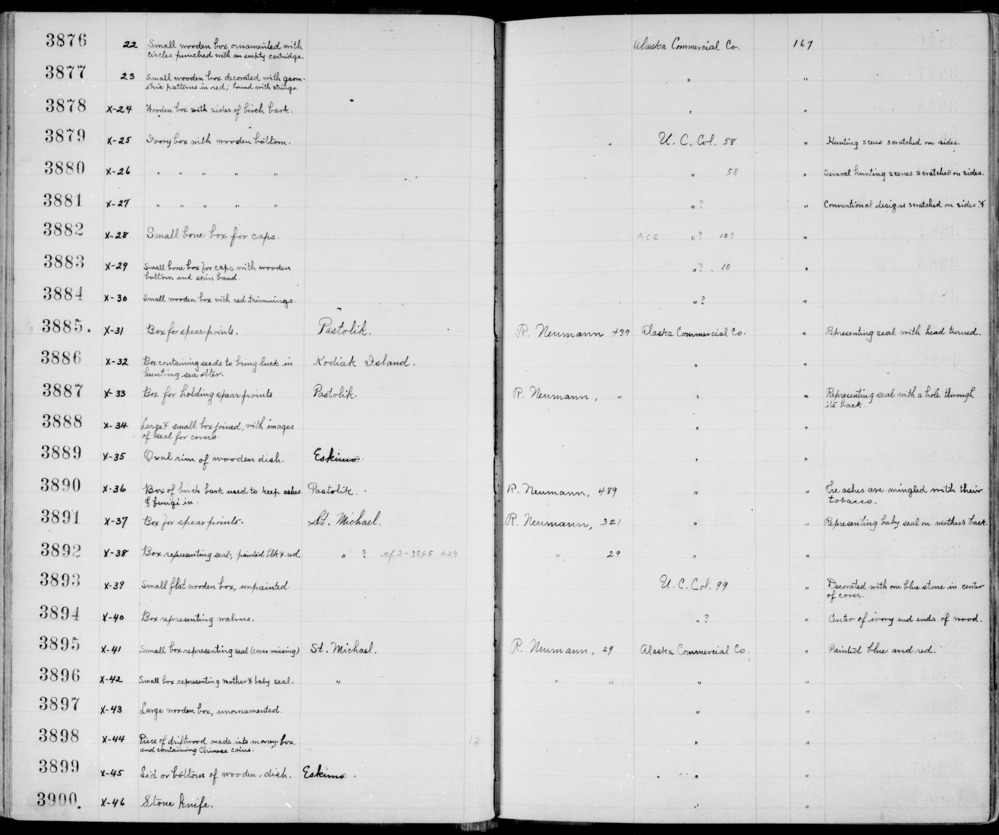 3876 22 Small wooden box ornamented with Alaska Commercial Co. 167
circles punched with an empty cartridge.
3877 23 Small wooden box decorated with geom- " "
etric patterns in red; bound with strings.
3878 X-24 Wooden box with sides of birch bark. " "
3879 X-25 Ivory box with wooden bottom. " U. C. Col. 58 " Hunting scene scratched on sides.
3880 X-26 " " " " " " 58 " Several hunting scenes scratched on sides.
3881 X-27 " " " " " " ? " Conventional designs scratched on sides &
3882 X-28 Small bone box for caps. Acc " ? 10? "
3883 X-29 Small bone box for caps with wooden " ? . 10 "
bottom and skin band
3884 X-30 Small wooden box with red trimmings. " ? "
3885. X-31 Box for spear points. Pastolik. R. Neumann 439 Alaska Commercial Co. " Representing seal with head turned.
3886 X-32 Box containing seeds to bring luck in Kodiak Island. " "
hunting sea otter.
3887 X-33 Box for holding spear points Pastolik. R. Neumann, " " " Representing seal with a hole through
its back.
3888 X-34 Large & small box joined, with images " "
of seal for covers
3889 X-35 Oval rim of wooden dish. Eskimo " "
3890 X-36 Box of birch bark used to keep ashes Pastolik. R. Neumann, 489 " " The ashes are mingled with their
of fungi in tobacco.
3891 X-37 Box for spear points. St. Michael. R. Neumann, 321 " " Representing baby seal on mother's back.
3892 X-38 Box representing seal; painted blk & red. " ? cf 2-3885 439 " 29 " "
3893 X-39 Small flat wooden box, unpainted. U. C. Col. 99 " Decorated with one blue stone in center
of cover.
3894 X-40 Box representing walrus. " ? " Center of ivory and ends of wood.
3895 X-41 Small box representing seal (cover missing) St. Michael. R. Neumann, 29 Alaska Commercial Co. " Painted blue and red.
3896 X-42 Small box representing mother & baby seal. " " " " "
3897 X-43 Large wooden box, unornamented. " "
3898 X-44 Piece of driftwood made into money-box, 12 " "
and containing Chinese coins.
3899 X-45 Lid or bottom of wooden dish. Eskimo " "
3900. X-46 Stone knife. " "